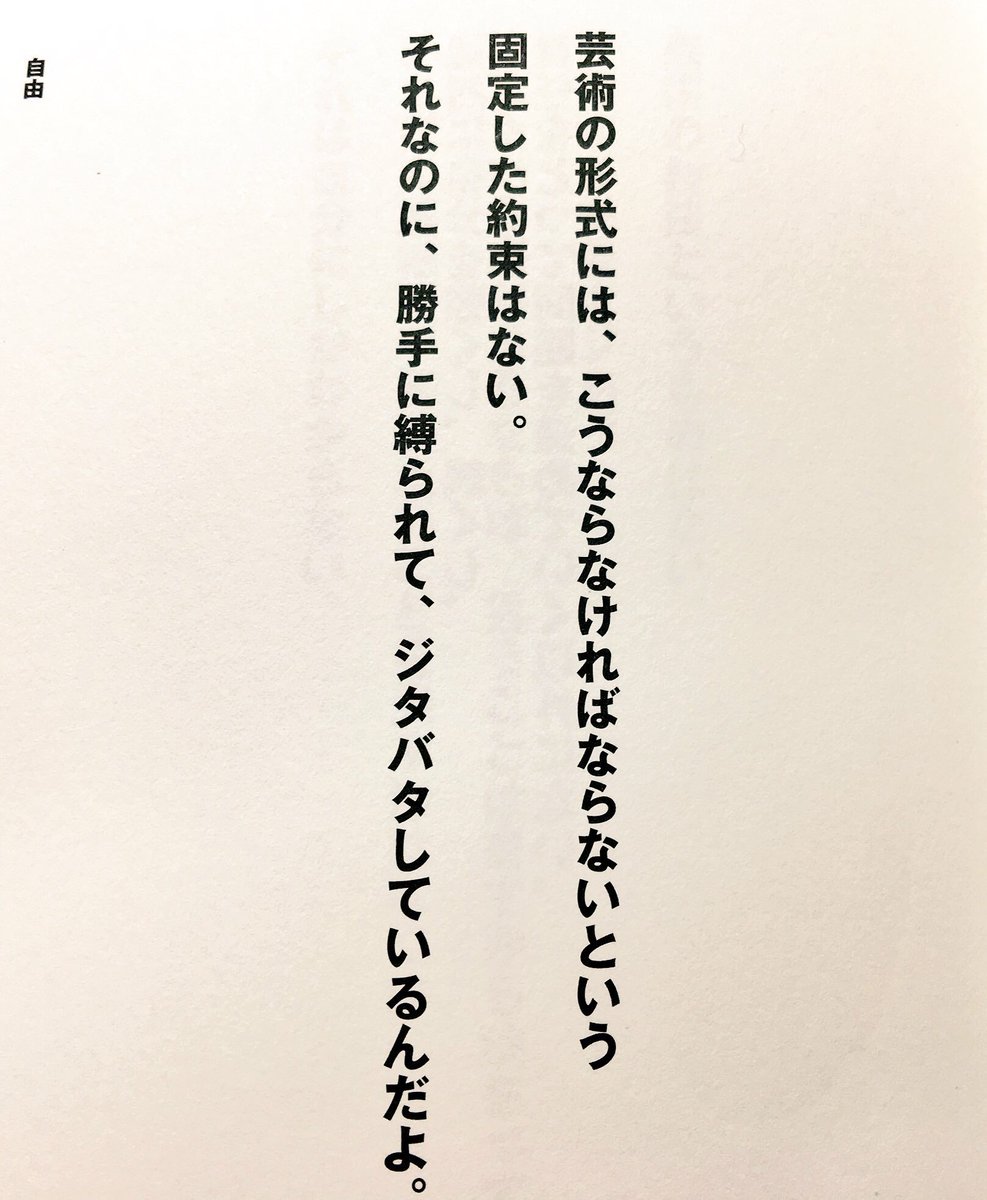 芸術の形式には、こうならなければならないという
固定した約束はない。
それなのに、勝手に縛られて、ジタバタしているんだよ。
自由